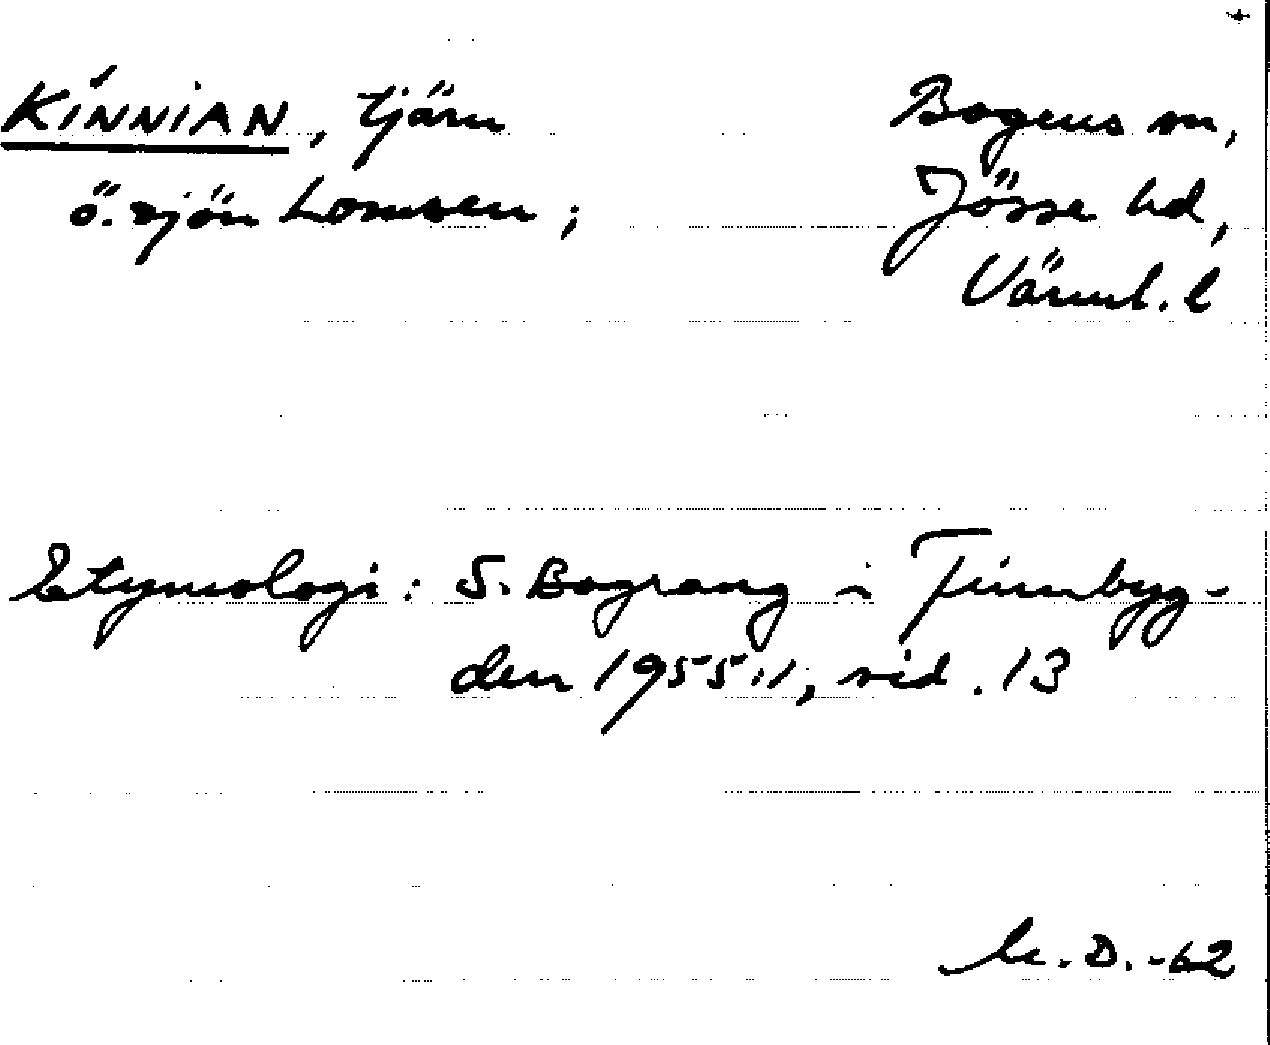 KINNIAN, tjärn
Bogens sn,
ö. sjön Lomsen;
Jösse hd,
Värml. l
Etymologi: S. Bograng i Finnbyg-
den 1955:1, sid. 13
D. -62